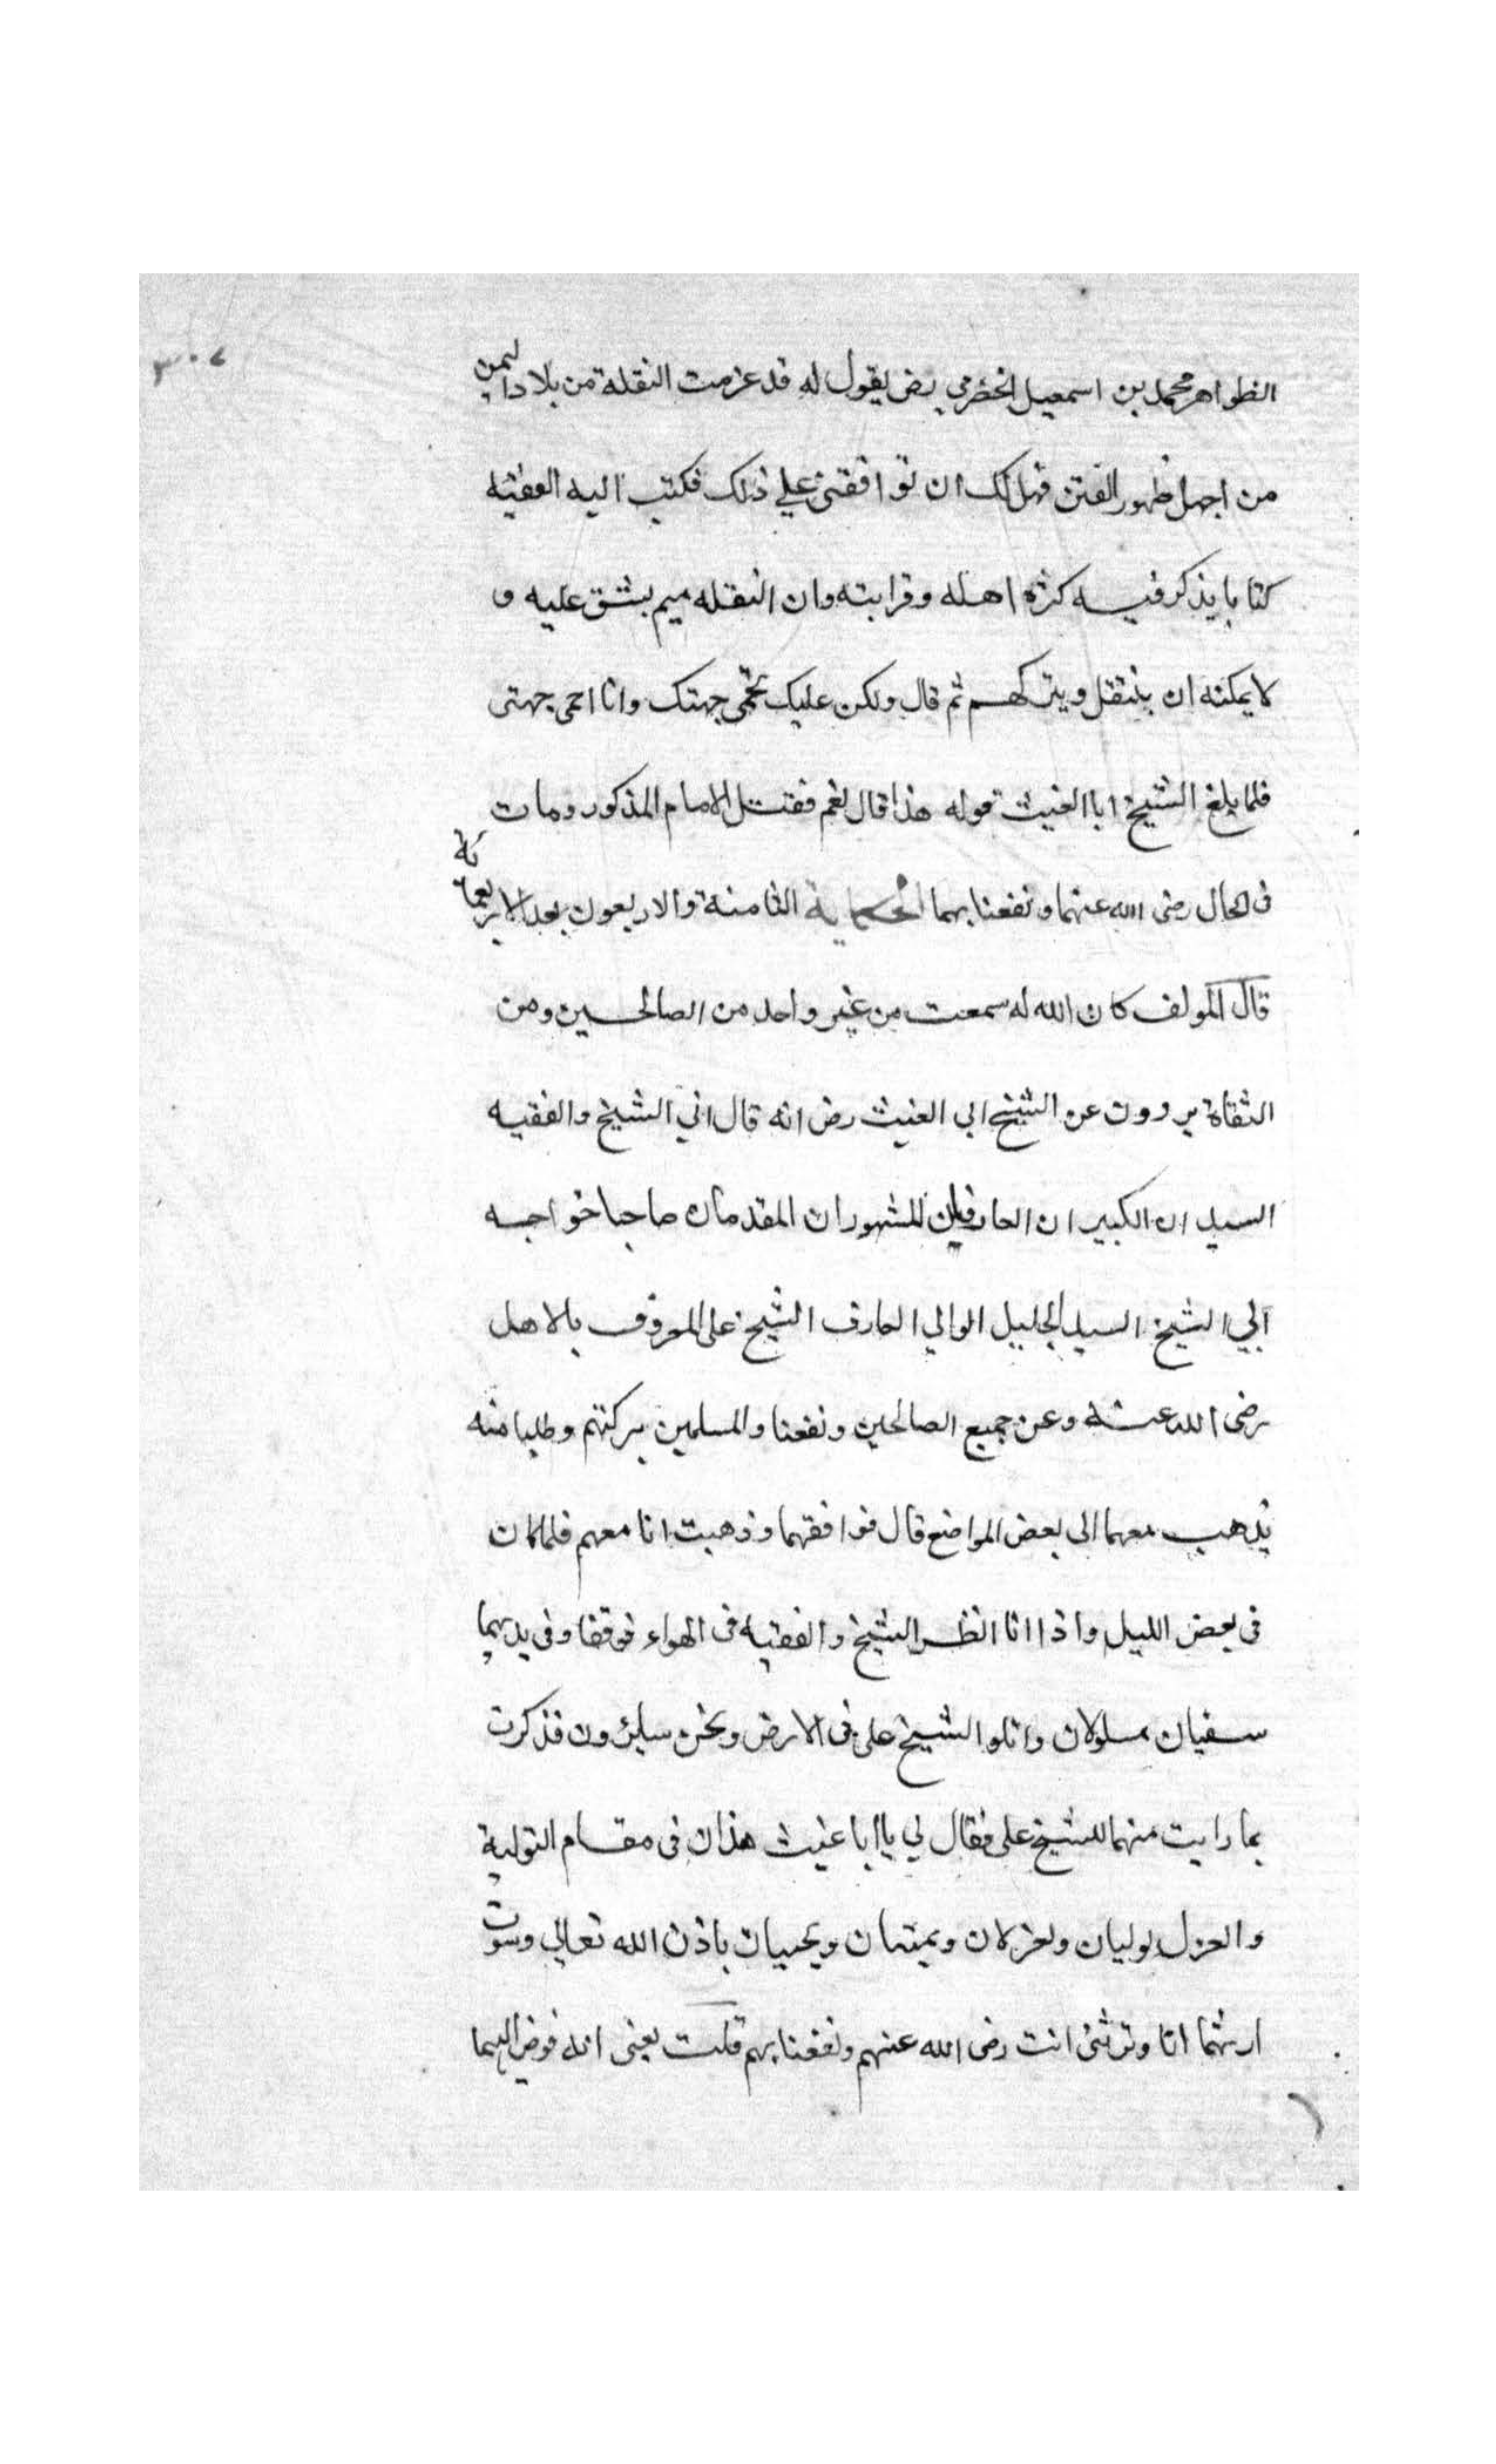 ٣٠٧
الظواهر محمد بن اسمعيل الحضرمي رض يقول له قد عزمت النقلة من بلاد اليمن
من اجل ظهور الفتن فهل لك ان توافقني علي ذلك فكتب اليه الفقيه
كتابا يذكر فيه كثرة اهله وقرابته وان النقله ميم بشق عليه و
لا يمكنه ان ينتقل ويتركهم ثم قال ولكن عليك تحمى جهتك وانا احمى جهتى
فلما بلغ الشيخ ابا الغيث قوله هذا قال نعم فقتل الامام المذكور ومات
فى الحال رضى الله عنهما ونفعنا بهما الحكاية الثامنة والاربعون بعد الاربعمائة
قال المولف كان الله له سمعت من غير واحد من الصالحين ومن
الثقاة يروون عن الشيخ ابى الغيث رض انه قال اتي الشيخ والفقيه
السيدان الكبيران العارفان المشهوران المقدمان صاحبا خواجه
الي الشيخ السيد الجليل الوالي العارف الشيخ على المعروف بالاهل
رضى الله عنه وعن جميع الصالحين ونفعنا والمسلمين ببركتهم وطلبا منه
يذهب معهما الى بعض المواضع قال فوافقهما وذهبت انا معهم فلما كان
فى بعض الليل واذا انا انظر الشيخ والفقيه فى الهواء فوقفا وفى يديهما
سفيان مسلولان وانا والشيخ على فى الارض ونحن سايرون فذكرت
بما رايت منهما للشيخ على فقال لي يا ابا غيث هذان فى مقام التولية
والعزل يوليان ويعزلان ويميتان ويحييان باذن الله تعالي وسوف
ارثهما انا وترثنى انت رضى الله عنهم ونفعنا بهم قلت يعنى انه فوض اليهما